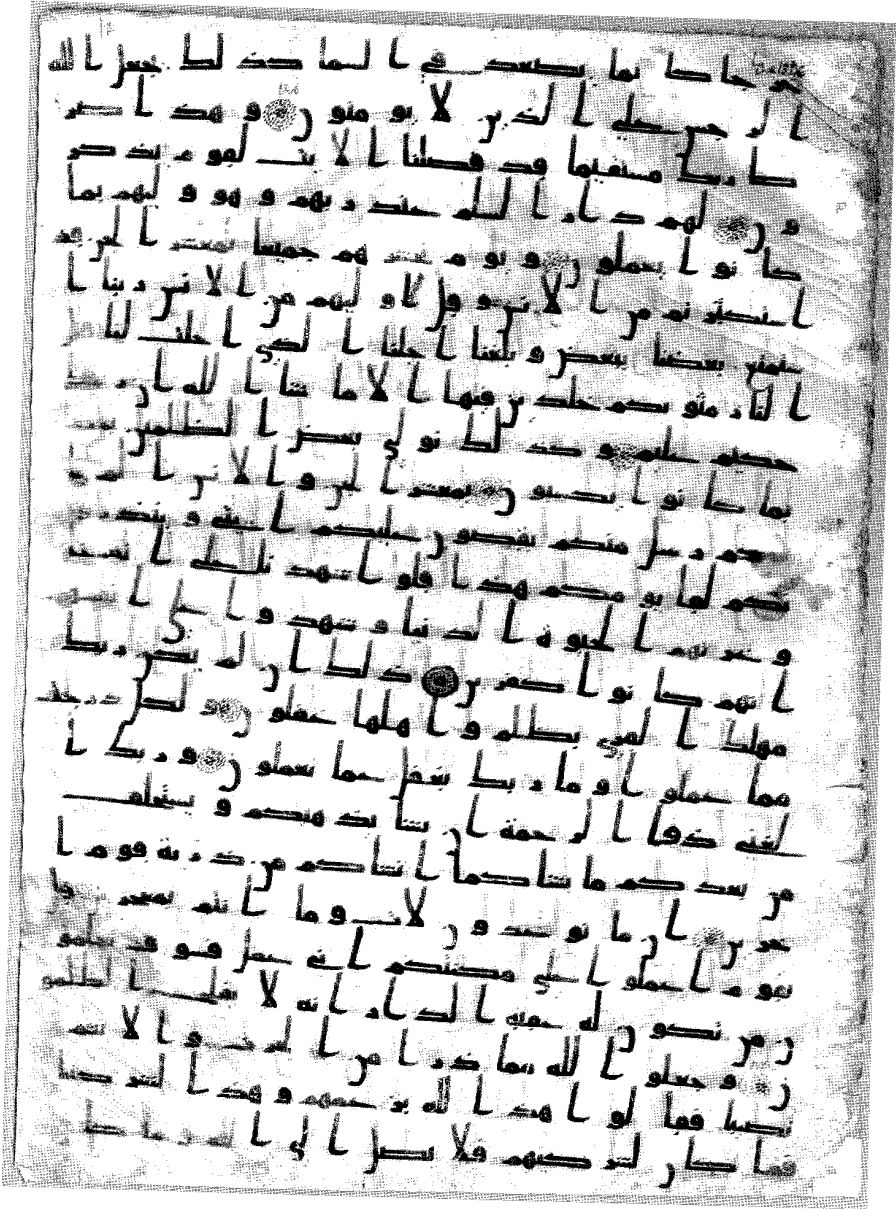 حرجا كانما يصعد في السما كذلك يجعل الله
الرجس على الذين لا يومنون وهذا صر
ط ربك مستقيما قد فصلنا الايت لقوم يذكر
ون لهم دار السلم عند ربهم وهو وليهم بما
كانوا يعملون ويوم نحشرهم جميعا يمعشر الجن قد
استكثرتم من الانس وقال اوليهم من الانس ربنا ا
ستمتع بعضنا ببعض وبلغنا اجلنا الذي اجلت لنا قل
النار مثويكم خلدين فيها الا ما شا الله ان ربك
حكيم عليم وكذلك نولي بعض الظلمين بعضا
بما كانوا يكسبون يمعشر الجن والانس الم يا
تكم رسل منكم يقصون عليكم ايتي وينذرو
نكم لقا يومكم هذا قلوا شهدنا على انفسنا
وغرتهم الحيوة الدنيا وشهدوا على انفسهم
انهم كانوا كفرين ذلك ان لم يكن ربك
مهلك القرى بظلم واهلها غفلون ولكل درجت
مما عملوا وما ربك بغفل عما تعملون وربك ا
لغني ذو الرحمة ان يشا يذهبكم ويستخلف
من بعدكم ما يشا كما انشاكم من ذرية قوم ا
خرين ان ما توعدون لات وما انتم بمعجزين قل
يقوم اعملوا على مكنتكم اني عمل فسوف تعلمو
ن من تكون له عقبه الدار انه لا يفلح الظلمو
ن وجعلوا لله مما ذرا من الحرث والانعم
نصيبا فقالوا هذا لله بزعمهم وهذا لشركينا
فما كان لشركيهم فلا يصل الى الله وما كا